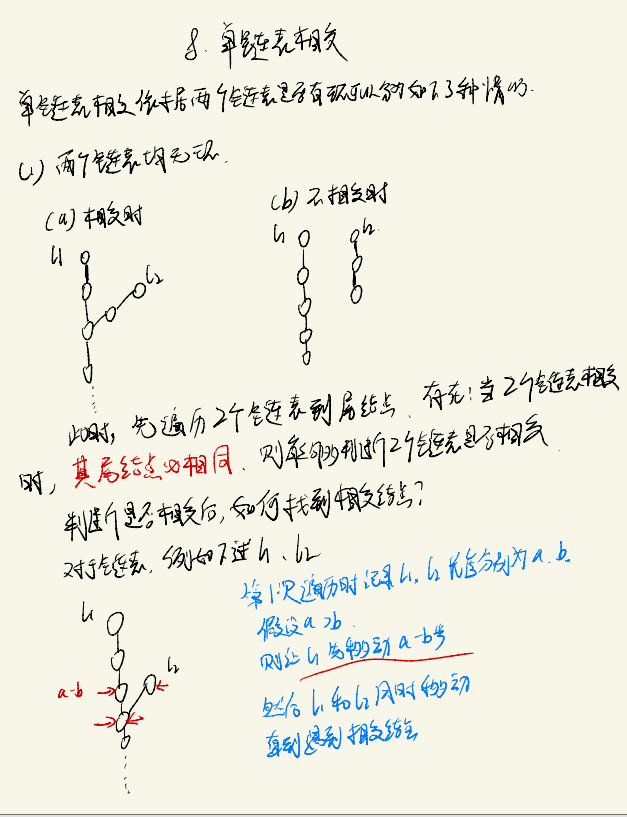 8. 单链表相交
单链表相交依据两个链表是否有环可以分为如下3种情况.
(1) 两个链表均无环.
(a) 相交时
(b) 不相交时
l1
l2
l1
l2
此时, 先遍历2个链表到尾结点、存在: 当2个链表相交
时, 其尾结点必相同、则能够判断2个链表是否相交
判断是否相交后, 如何找到相交结点?
对于链表, 例如下述l1、l2
l1
l2
a-b
第1次遍历时记录l1, l2长度分别为a、b.
假设a>b.
则让l1先移动a-b步
然后l1和l2同时移动
直到遇到相交结点